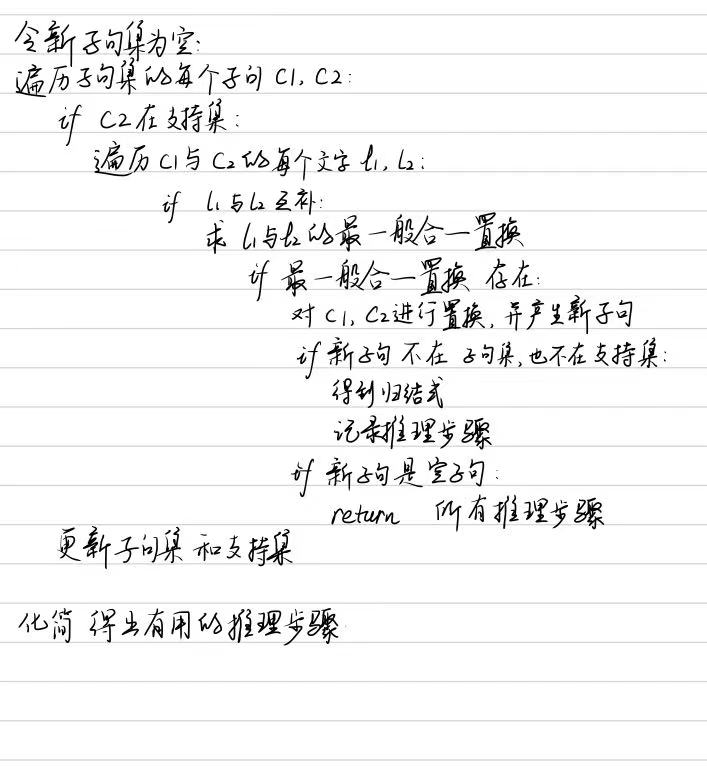 令新子句集为空:
遍历子句集的每个子句 C1, C2:
if C2在支持集:
遍历C1与C2的每个文字 l1, l2:
if l1与l2互补:
求 l1与l2的最一般合一置换
if 最一般合一置换 存在:
对 C1, C2进行置换, 并产生新子句
if 新子句 不在 子句集, 也不在支持集:
得到归结式
记录推理步骤
if 新子句是空子句:
return 所有推理步骤
更新子句集 和支持集
化简 得出有用的推理步骤